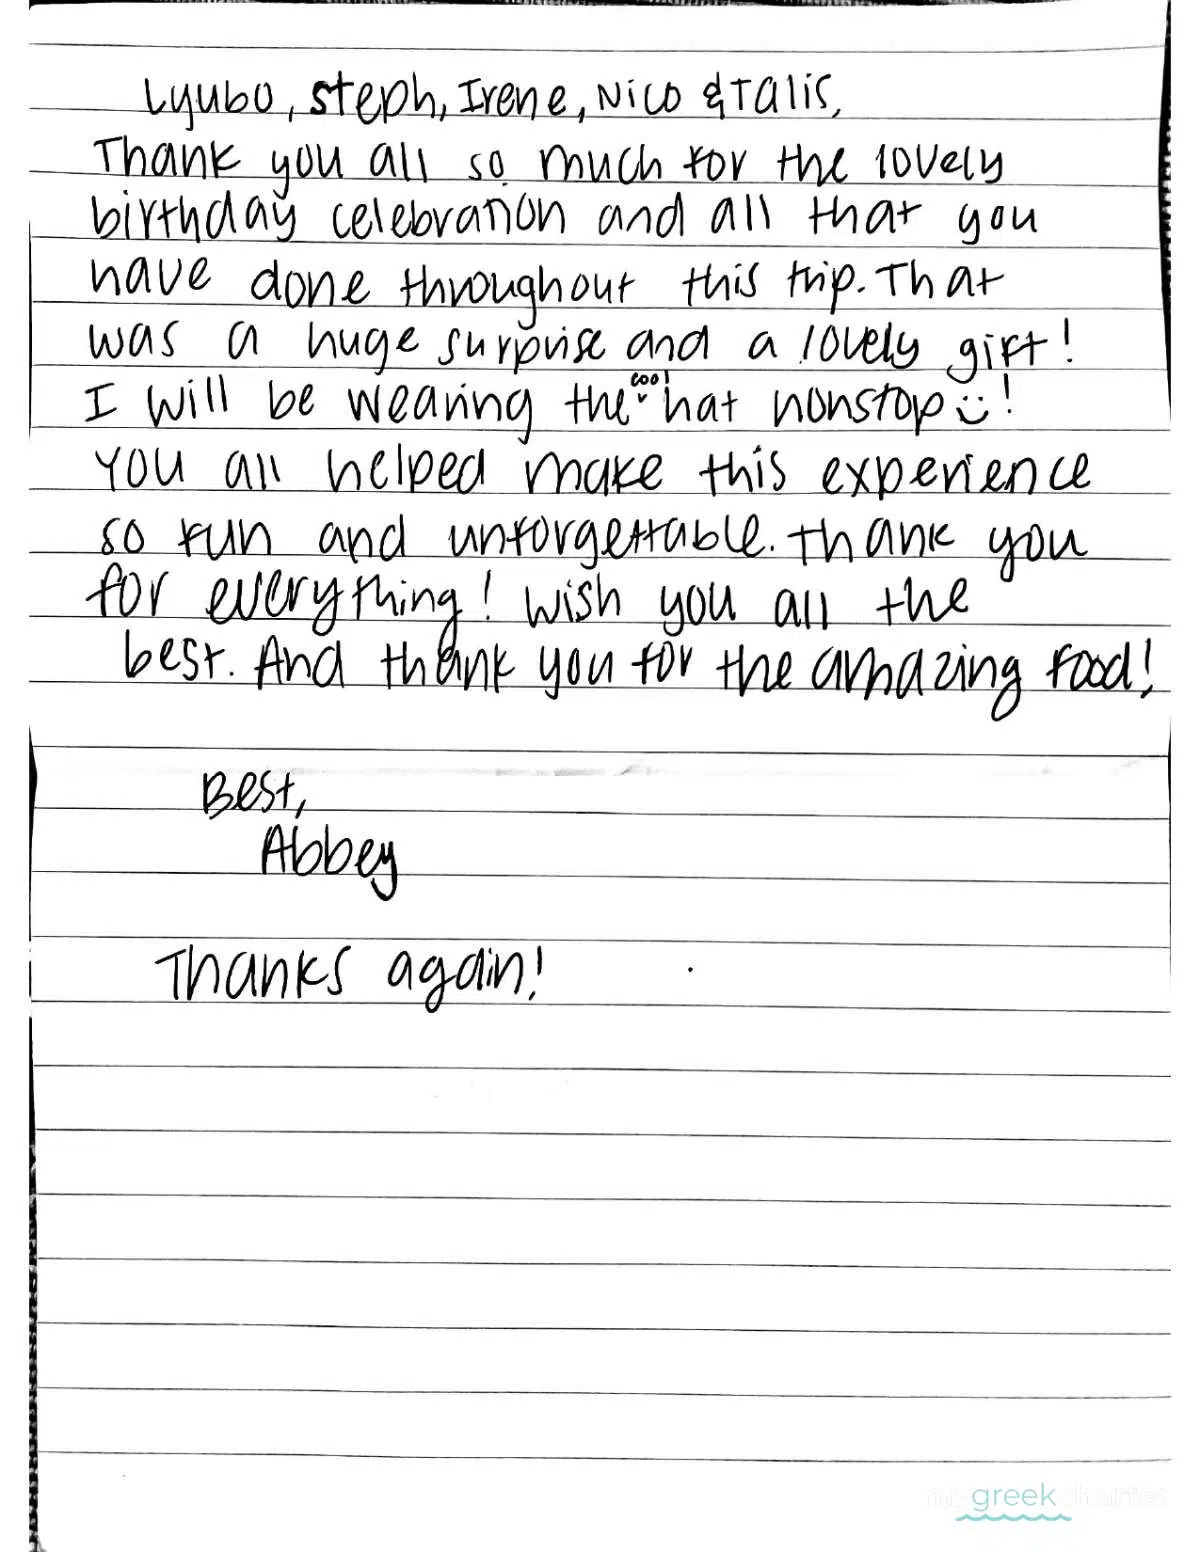 Lyubo, Steph, Irene, Nico & Talis,
Thank you all so much for the lovely
birthday celebration and all that you
have done throughout this trip. That
was a huge surprise and a lovely gift!
I will be wearing the cool hat nonstop :)!
You all helped make this experience
so fun and unforgettable. Thank you
for everything! Wish you all the
best. And thank you for the amazing food!
Best,
Abbey
Thanks again!
my greek charter